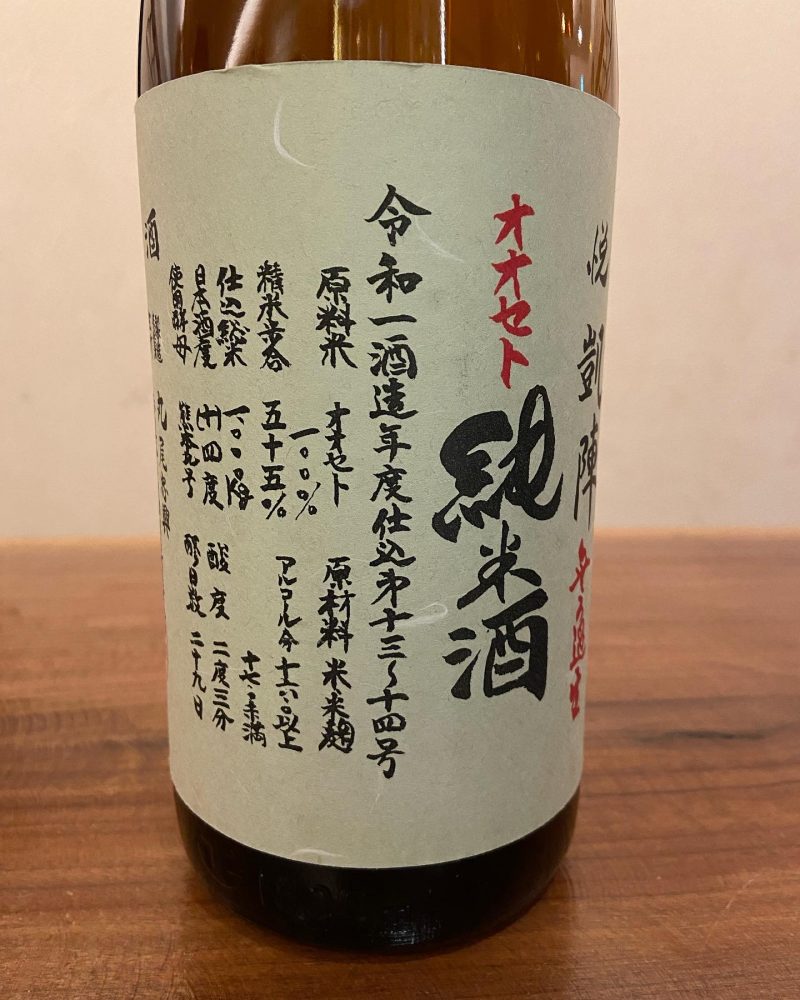 悦 凱陣 無濾過生
オオセト
純米酒
令和一酒造年度仕込第十三〜十四号
原料米 オオセト 一〇〇% 原材料 米、米麹
精米歩合 五十五% アルコール分 十六・〇以上 十七・〇未満
仕込総米 一、一〇〇Kg
日本酒度 (十)四度 酸度 二度三分
使用酵母 熊本九号 醪日数 二十九日
酒
丸尾忠興